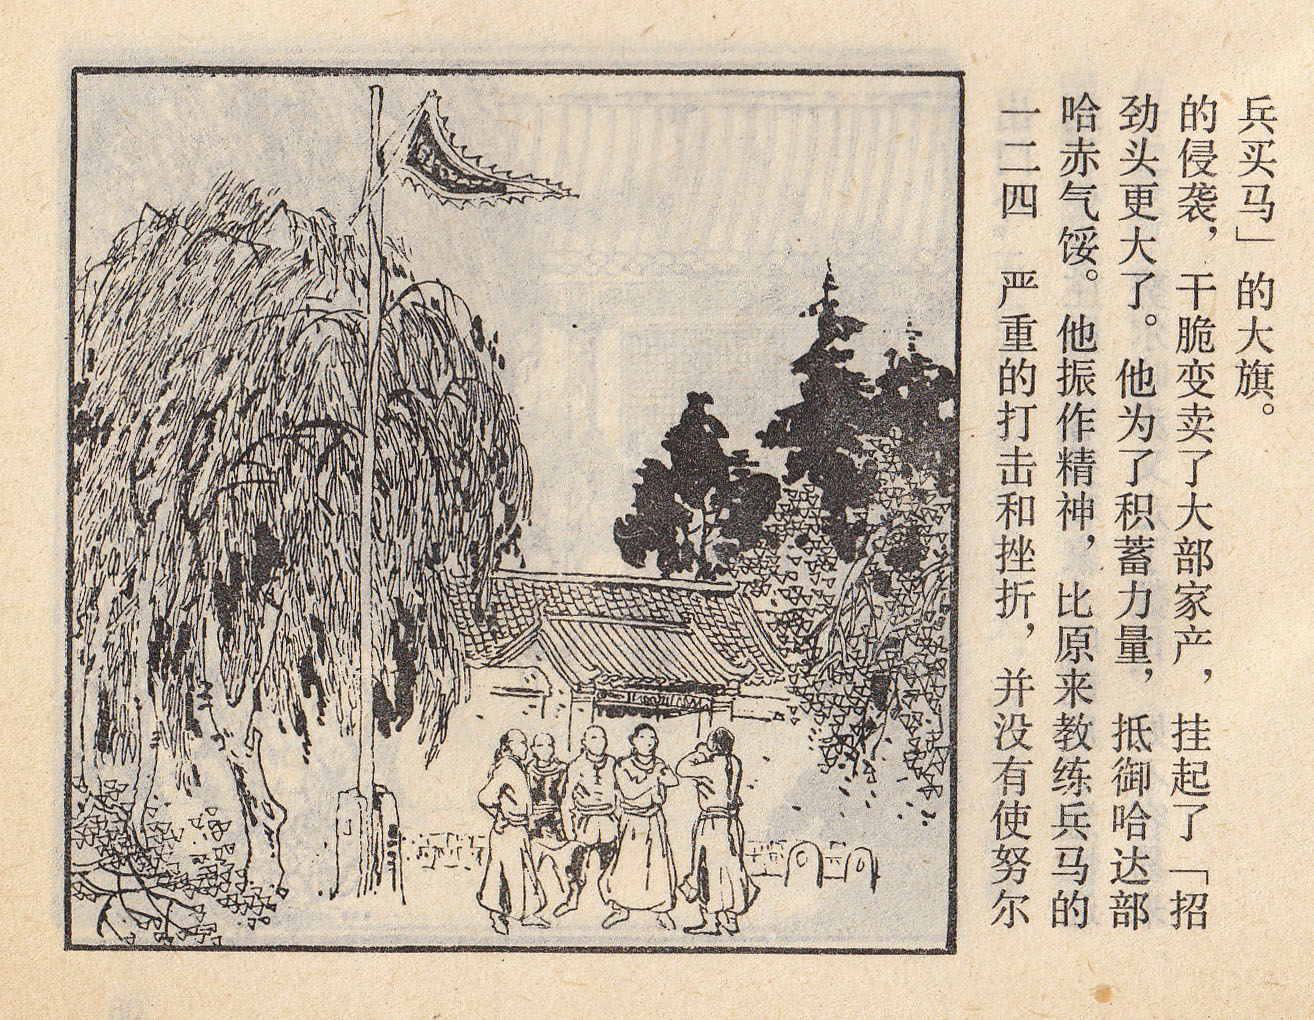 一二四　严重的打击和挫折，并没有使努尔
哈赤气馁。他振作精神，比原来教练兵马的
劲头更大了。他为了积蓄力量，抵御哈达部
的侵袭，干脆变卖了大部家产，挂起了「招
兵买马」的大旗。